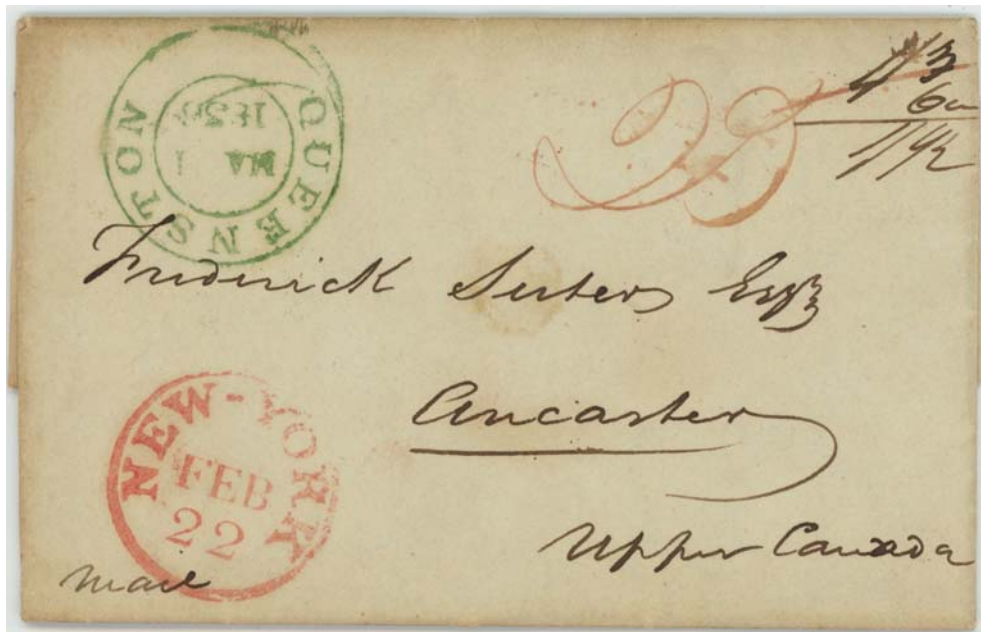 QUEENSTON
MA 1
1838
25
1/3
6
1/9½
Frederick Suters Esqr
Ancaster
Upper Canada
NEW-YORK
FEB
22
mail